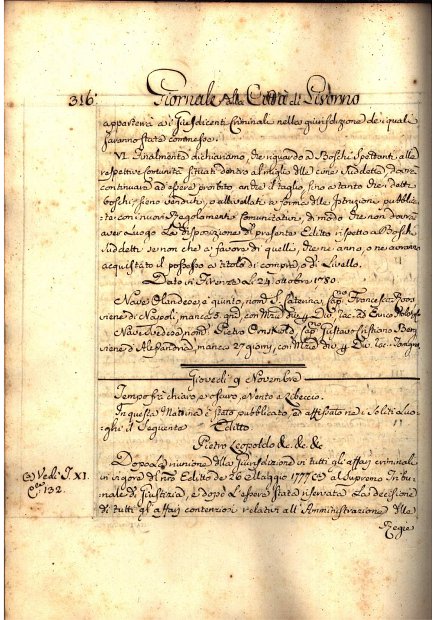 316. Giornale della Città di Livorno
apparterrà a i Giusdicenti Criminali nella giurisdizione de i quali
saranno state commesse.
VI. Finalmente dichiariamo, che riguardo a Boschi Spettanti alle
respettive Comunità situati dentro al miglio delle cime Suddette, dovrà
continuare ad essere proibito anche il taglio, fino a tanto che detti
boschi sieno venduti, o allivellati a forma delle Istruzioni pubblica-
te con i nuovi Regolamenti Comunitativi, di modo che non dovrà
aver Luogo La disposizione del presente Editto rispetto a Boschi
Suddetti se non che a favore di quelli, che ne anno, o ne avranno
acquistato il possesso a titolo di compra, o di Livello.
Dato in Firenze Li 24 ottobre 1780.
Nave Olandese è giunto, nom. S. Caterina, Cap.no Francesco
viene di Napoli, manca 5 gni, con Mrd div. 4 Div. Rac. ad Enrico
Nave Svedese nom. Pietro Cap.no Gustavo Cristiano
viene d'Alessandria, manca 27 giorni, con Mrd div. 4 Div. Rac.
Giovedì 9 Novembre
Tempo fra chiaro, e oscuro, e vento a Libeccio.
In questa Mattina è stato pubblicato, ed affissato ne i Soliti Luo-
ghi il Seguente Editto
Pietro Leopoldo &c. &c. &c.
Dopo La riunione della Giurisdizione in tutti gli affari criminali
in vigore del nro Editto de 26 Maggio 1777 (a) al Supremo Tribu-
nale di Giustizia, e dopo L'essere stata riservata La decisione
di tutti gli affari contenziosi relativi all'Amministrazione delle
Regie
(a) Vedi T. XI.
C.te 132.